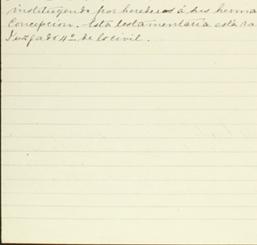 instituyendo por herederos á sus herma
Concepcion. Esta testamentaría está ra
Juzgado 4º de lo civil.